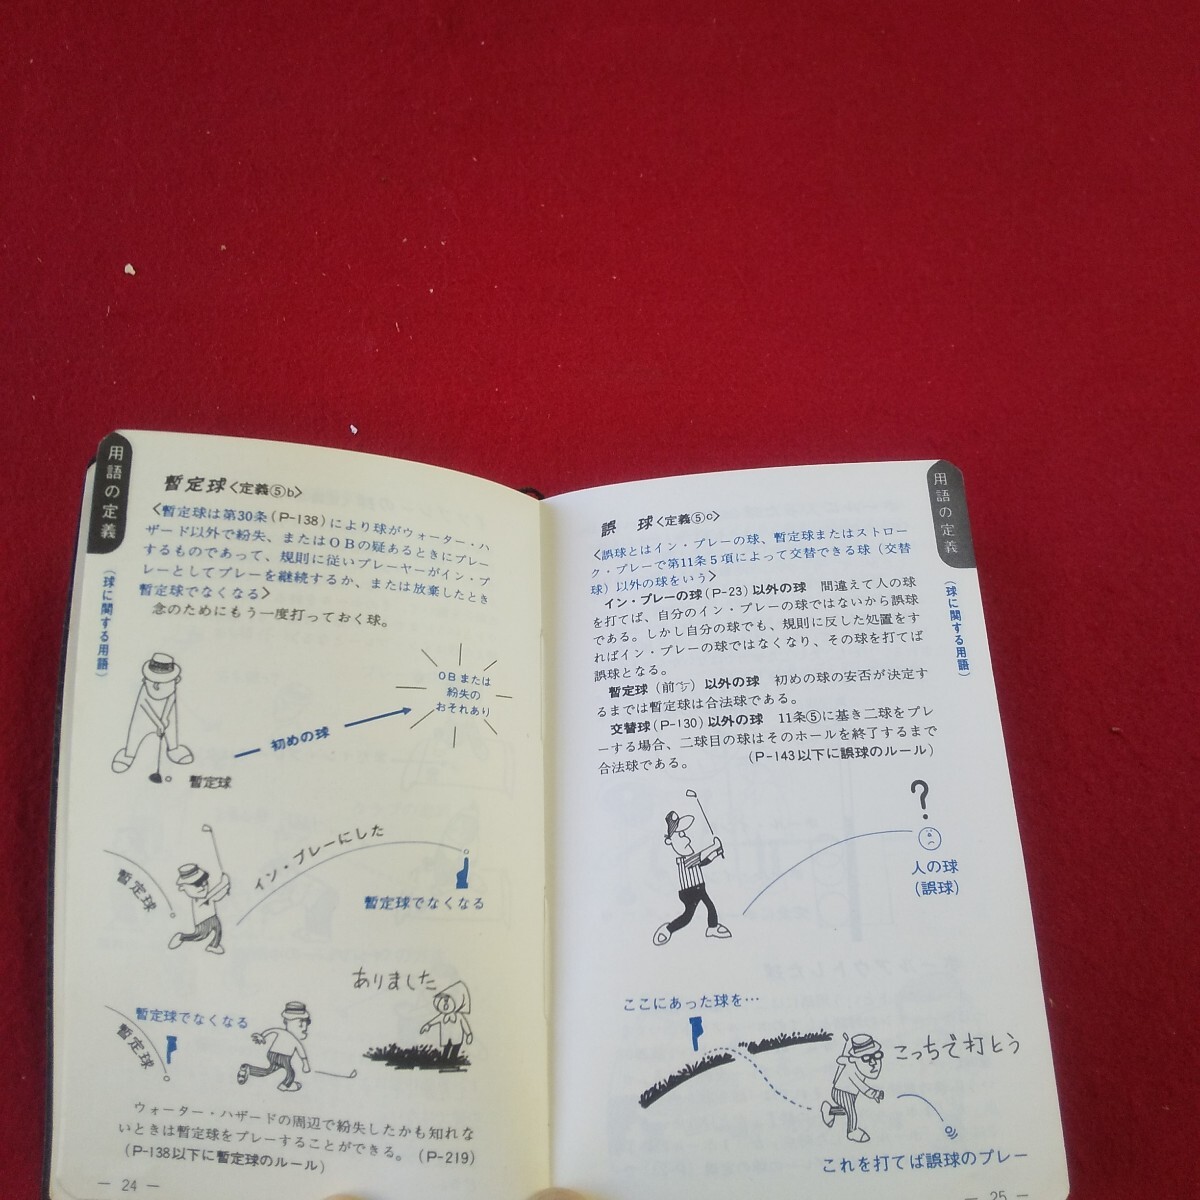 用語の定義
(球に関する用語)
暫定球<定義⑤b>
<暫定球は第30条(P-138)により球がウォーター・ハ
ザード以外で紛失、またはOBの疑あるときにプレー
するものであって、規則に従いプレーヤーがイン・プ
レーとしてプレーを継続するか、または放棄したとき
暫定球でなくなる>
念のためにもう一度打っておく球。
OBまたは
紛失の
おそれあり
初めの球
暫定球
暫定球
イン・プレーにした
暫定球でなくなる
ありました
暫定球でなくなる
暫定球
ウォーター・ハザードの周辺で紛失したかも知れな
いときは暫定球をプレーすることができる。(P-219)
(P-138以下に暫定球のルール)
— 24 —
用語の定義
(球に関する用語)
誤 球<定義⑤c>
<誤球とはイン・プレーの球、暫定球またはストロー
ク・プレーで第11条5項によって交替できる球(交替
球)以外の球をいう>
イン・プレーの球(P-23)以外の球 間違えて人の球
を打てば、自分のイン・プレーの球ではないから誤球
である。しかし自分の球でも、規則に反した処置をす
ればイン・プレーの球ではなくなり、その球を打てば
誤球となる。
暫定球(前㌻)以外の球 初めの球の安否が決定す
るまでは暫定球は合法球である。
交替球(P-130)以外の球 11条⑤に基き二球をプレ
ーする場合、二球目の球はそのホールを終了するまで
合法球である。 (P-143以下に誤球のルール)
?
人の球
(誤球)
ここにあった球を…
こっちで打とう
これを打てば誤球のプレー
— 25 —